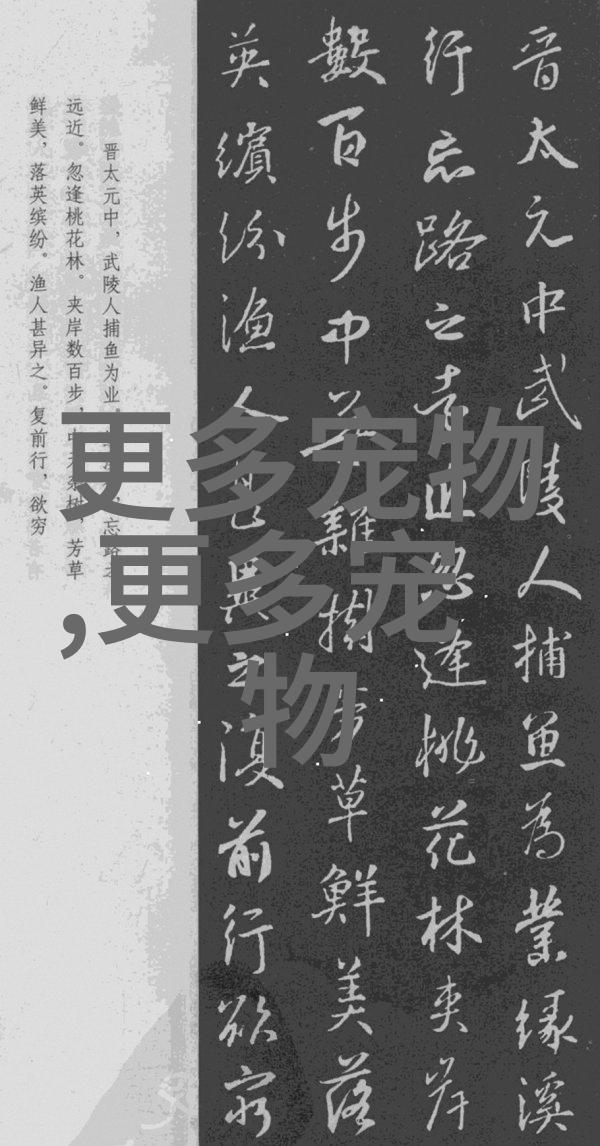 晋太元中武陵人捕鱼为業缘溪
行忘路之遠近忽逢桃花林夹岸
數百步中無雜樹芳草鮮美落
英繽纷渔人甚異之復前行欲窮
晋太元中，武陵人捕鱼为业。
忘路之
远近。忽逢桃花林。夹岸数百步，中无杂树，芳草
鲜美，落英缤纷。渔人甚异之。复前行，欲穷
更多宠物
,更多宠
物